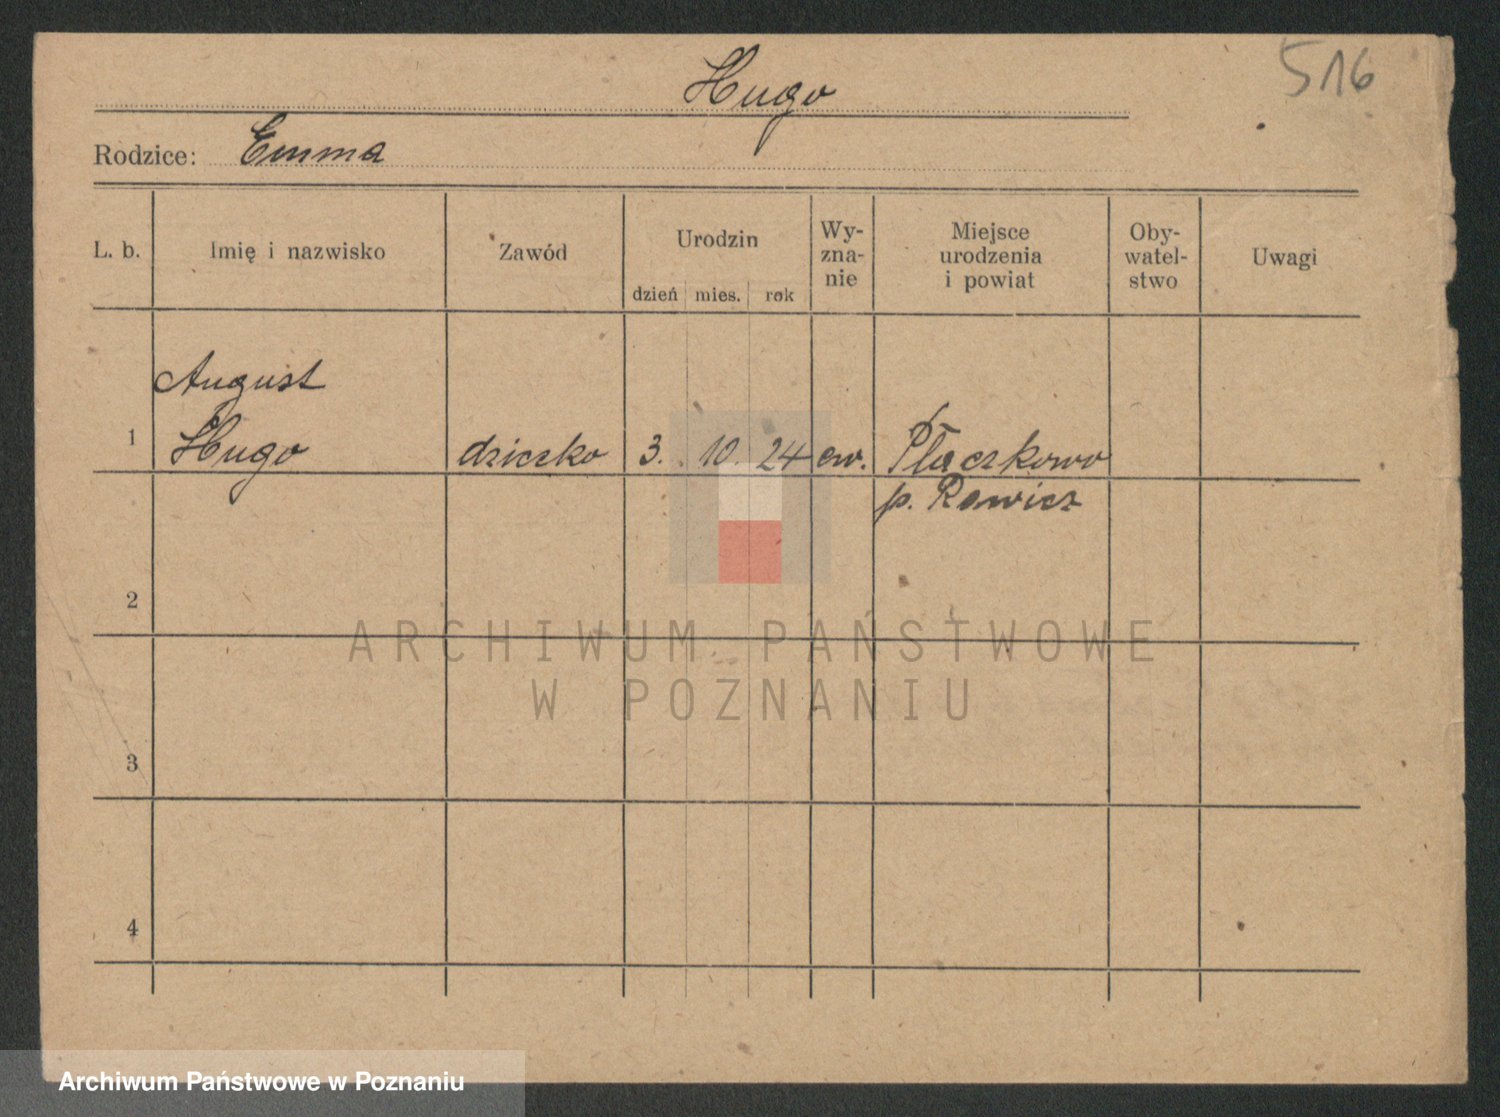 516
Hugo
Rodzice: Emma
L. b. Imię i nazwisko Zawód Urodzin dzień mies. rok Wy-zna-nie Miejsce urodzenia i powiat Oby-watel-stwo Uwagi
August
1 Hugo dziecko 3. 10. 24 ew. Płaczkowo
p. Rawicz
2
ARCHIWUM PAŃSTWOWE
W POZNANIU
3
4
Archiwum Państwowe w Poznaniu